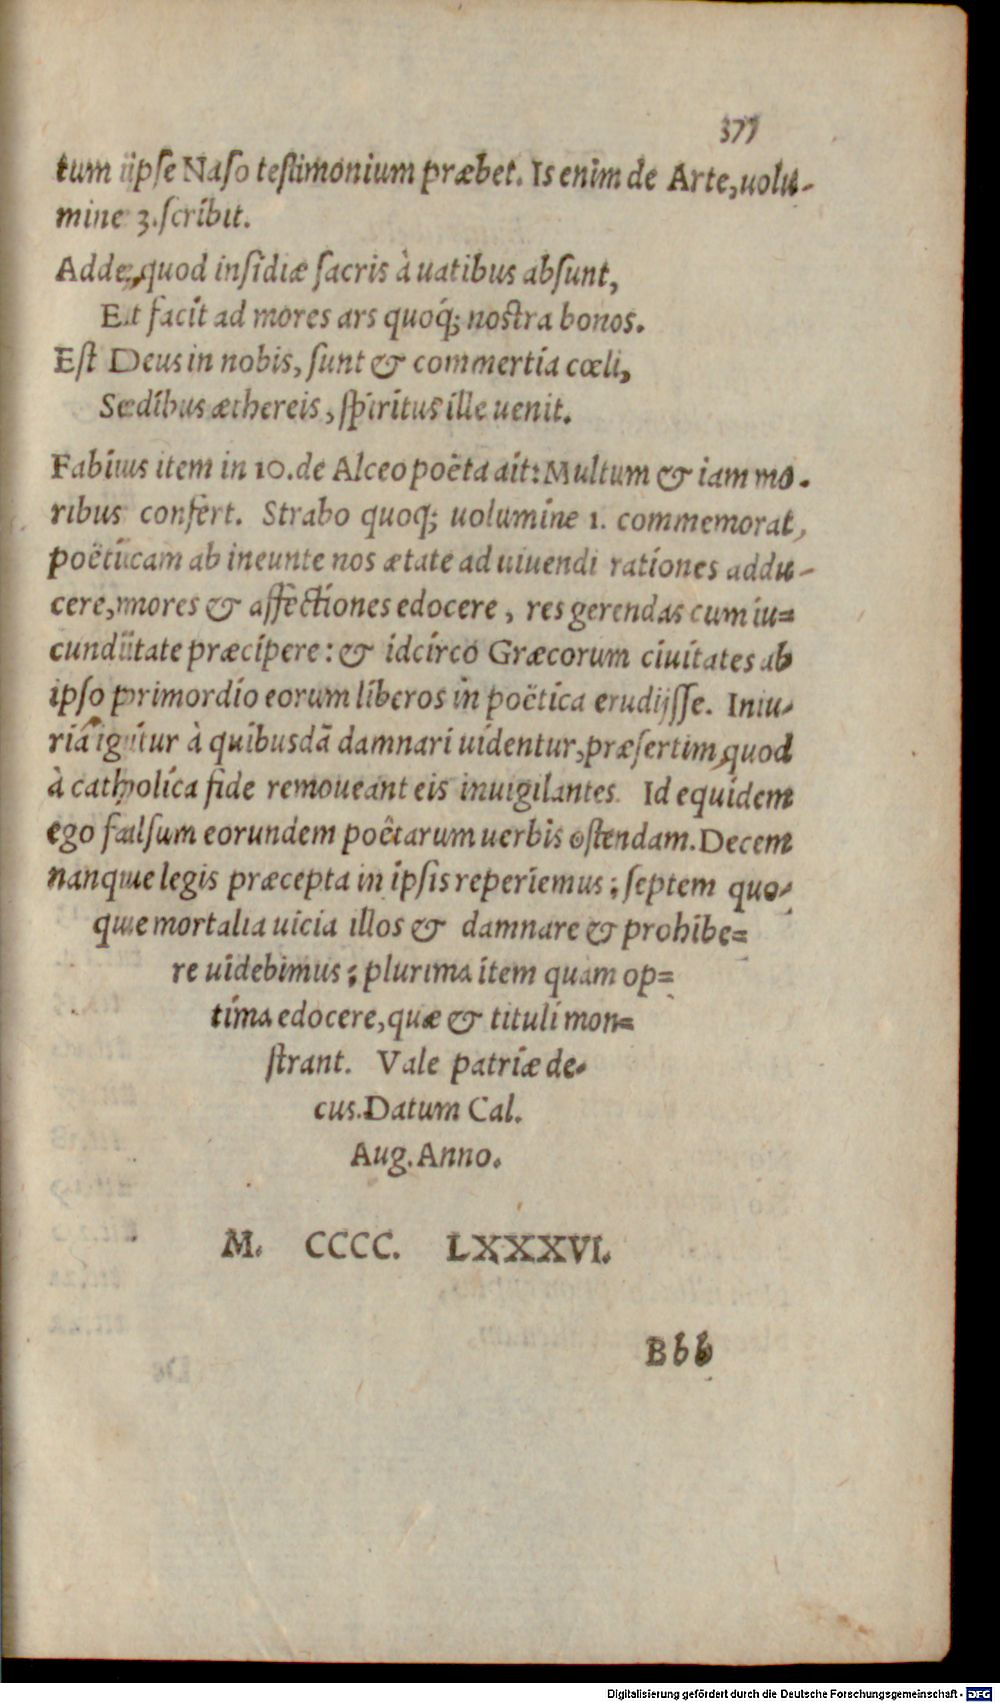 377
tum ipse Naso testimonium præbet. Is enim de Arte, uolu-
mine 3. scribit.
Adde, quod insidiæ sacris à uatibus absunt,
Et facit ad mores ars quoq; nostra bonos.
Est Deus in nobis, sunt & commertia cœli,
Sedibus æthereis, spiritus ille uenit.
Fabius item in 10. de Alceo poëta ait: Multum & iam mo-
ribus confert. Strabo quoq; uolumine 1. commemorat,
poëticam ab ineunte nos ætate ad uiuendi rationes addu-
cere, mores & affectiones edocere, res gerendas cum iu=
cunditate præcipere: & idcirco Græcorum ciuitates ab
ipso primordio eorum liberos in poëtica erudijsse. Iniu-
riã igitur à quibusdã damnari uidentur, præsertim, quod
à catholica fide remoueant eis inuigilantes. Id equidem
ego falsum eorundem poëtarum uerbis ostendam. Decem
nanque legis præcepta in ipsis reperiemus; septem quo-
que mortalia uicia illos & damnare & prohibe=
re uidebimus; plurima item quam op=
tima edocere, quæ & tituli mon=
strant. Vale patriæ de-
cus. Datum Cal.
Aug. Anno.
M. CCCC. LXXXVI.
Bbb
Digitalisierung gefördert durch die Deutsche Forschungsgemeinschaft - DFG